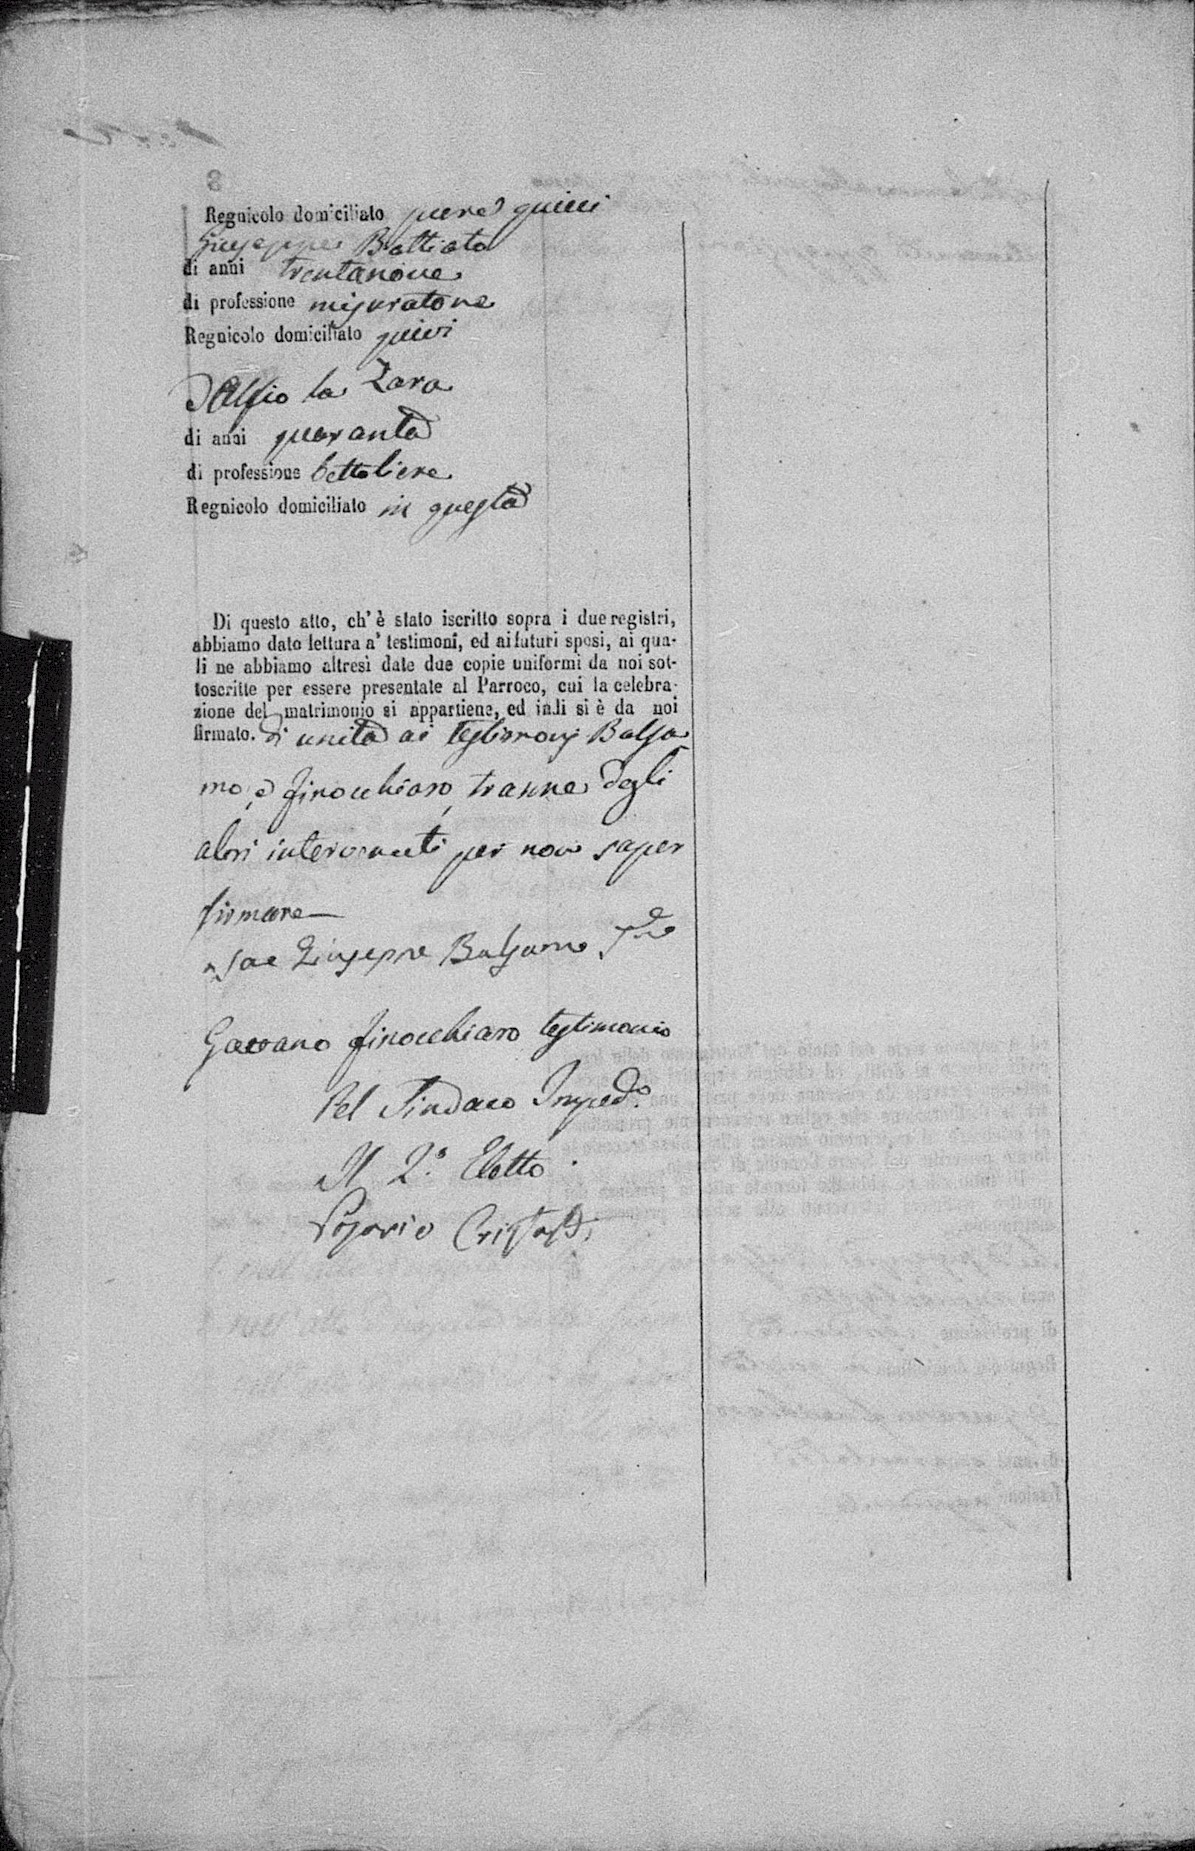 Regnicolo domiciliato pure quivi
Giuseppe Battiato
di anni trentanove
di professione misuratore
Regnicolo domiciliato quivi
Alfio la Zara
di anni quaranta
di professione bettoliere
Regnicolo domiciliato in questa
Di questo atto, ch' è stato iscritto sopra i due registri,
abbiamo dato lettura a' testimonî, ed ai futuri sposi, ai qua-
li ne abbiamo altresì date due copie uniformi da noi sot-
toscritte per essere presentate al Parroco, cui la celebra-
zione del matrimonio si appartiene, ed indi si è da noi
firmato. di unita ai testimonj Balsa
mo, e Finocchiaro, tranne degli
altri intervenuti per non saper
firmare
Giuseppe Balsamo
Gaetano Finocchiaro testimonio
Pel Sindaco Imped.º
Il 2.º Eletto
Rosario